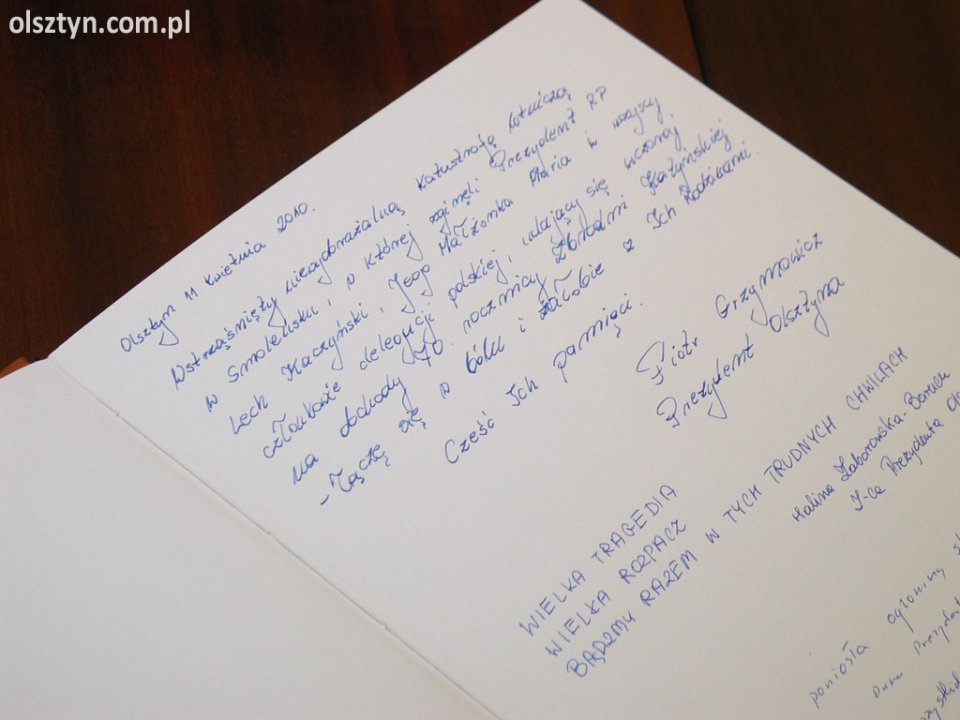 olsztyn.com.pl
Olsztyn 11 kwietnia 2010.
Wstrząśnięty niewyobrażalną katastrofą lotniczą
w Smoleńsku, w której zginęli Prezydent RP
Lech Kaczyński, Jego Małżonka Maria i wszyscy
członkowie delegacji polskiej, udający się wczoraj
na obchody 70. rocznicy Zbrodni Katyńskiej
- łączę się w bólu i żałobie z Ich Rodzinami.
Cześć Ich pamięci.
Piotr Grzymowicz
Prezydent Olsztyna
WIELKA TRAGEDIA
WIELKA ROZPACZ
BĄDŹMY RAZEM W TYCH TRUDNYCH CHWILACH
Halina Zaborowska-Boruch
V-ce Prezydenta
poniosła ogromną
Pana